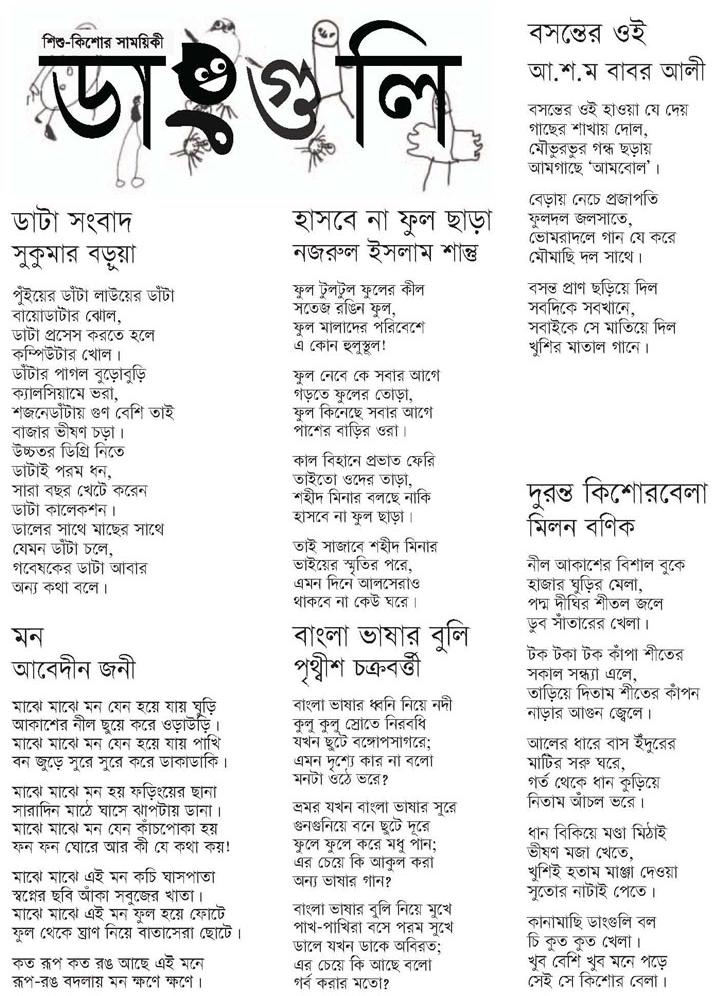 শিশু-কিশোর সাময়িকী
ডাংগুলি
ডাটা সংবাদ
সুকুমার বড়ুয়া
পুঁইয়ের ডাঁটা লাউয়ের ডাঁটা
বায়োডাটার ঝোল,
ডাটা প্রসেস করতে হলে
কম্পিউটার খোল।
ডাঁটার পাগল বুড়োবুড়ি
ক্যালসিয়ামে ভরা,
শজনেডাঁটায় গুণ বেশি তাই
বাজার ভীষণ চড়া।
উচ্চতর ডিগ্রি নিতে
ডাটাই পরম ধন,
সারা বছর খেটে করেন
ডাটা কালেকশন।
ডালের সাথে মাছের সাথে
যেমন ডাঁটা চলে,
গবেষকের ডাটা আবার
অন্য কথা বলে।
মন
আবেদীন জনী
মাঝে মাঝে মন যেন হয়ে যায় ঘুড়ি
আকাশের নীল ছুয়ে করে ওড়াউড়ি।
মাঝে মাঝে মন যেন হয়ে যায় পাখি
বন জুড়ে সুরে সুরে করে ডাকাডাকি।
মাঝে মাঝে মন হয় ফড়িংয়ের ছানা
সারাদিন মাঠে ঘাসে ঝাপটায় ডানা।
মাঝে মাঝে মন যেন কাঁচপোকা হয়
ফন ফন ঘোরে আর কী যে কথা কয়!
মাঝে মাঝে এই মন কচি ঘাসপাতা
স্বপ্নের ছবি আঁকা সবুজের খাতা।
মাঝে মাঝে এই মন ফুল হয়ে ফোটে
ফুল থেকে ঘ্রাণ নিয়ে বাতাসেরা ছোটে।
কত রূপ কত রঙ আছে এই মনে
রূপ-রঙ বদলায় মন ক্ষণে ক্ষণে।
হাসবে না ফুল ছাড়া
নজরুল ইসলাম শান্তু
ফুল টুলটুল ফুলের কীল
সতেজ রঙিন ফুল,
ফুল মালাদের পরিবেশে
এ কোন হুলুস্থূল!
ফুল নেবে কে সবার আগে
গড়তে ফুলের তোড়া,
ফুল কিনেছে সবার আগে
পাশের বাড়ির ওরা।
কাল বিহানে প্রভাত ফেরি
তাইতো ওদের তাড়া,
শহীদ মিনার বলছে নাকি
হাসবে না ফুল ছাড়া।
তাই সাজাবে শহীদ মিনার
ভাইয়ের স্মৃতির পরে,
এমন দিনে আলসেরাও
থাকবে না কেউ ঘরে।
বাংলা ভাষার বুলি
পৃথ্বীশ চক্রবর্ত্তী
বাংলা ভাষার ধ্বনি নিয়ে নদী
কুলু কুলু স্রোতে নিরবধি
যখন ছুটে বঙ্গোপসাগরে;
এমন দৃশ্যে কার না বলো
মনটা ওঠে ভরে?
ভ্রমর যখন বাংলা ভাষার সুরে
গুনগুনিয়ে বনে ছুটে দূরে
ফুলে ফুলে করে মধু পান;
এর চেয়ে কি আকুল করা
অন্য ভাষার গান?
বাংলা ভাষার বুলি নিয়ে মুখে
পাখ-পাখিরা বসে পরম সুখে
ডালে যখন ডাকে অবিরত;
এর চেয়ে কি আছে বলো
গর্ব করার মতো?
বসন্তের ওই
আ.শ.ম বাবর আলী
বসন্তের ওই হাওয়া যে দেয়
গাছের শাখায় দোল,
মৌভুরভুর গন্ধ ছড়ায়
আমগাছে ‘আমবোল’।
বেড়ায় নেচে প্রজাপতি
ফুলদল জলসাতে,
ভোমরাদলে গান যে করে
মৌমাছি দল সাথে।
বসন্ত প্রাণ ছড়িয়ে দিল
সবদিকে সবখানে,
সবাইকে সে মাতিয়ে দিল
খুশির মাতাল গানে।
দুরন্ত কিশোরবেলা
মিলন বণিক
নীল আকাশের বিশাল বুকে
হাজার ঘুড়ির মেলা,
পদ্ম দীঘির শীতল জলে
ডুব সাঁতারের খেলা।
টক টকা টক কাঁপা শীতের
সকাল সন্ধ্যা এলে,
তাড়িয়ে দিতাম শীতের কাঁপন
নাড়ার আগুন জ্বেলে।
আলের ধারে বাস ইঁদুরের
মাটির সরু ঘরে,
গর্ত থেকে ধান কুড়িয়ে
নিতাম আঁচল ভরে।
ধান বিকিয়ে মণ্ডা মিঠাই
ভীষণ মজা খেতে,
খুশিই হতাম মাঞ্জা দেওয়া
সুতোর নাটাই পেতে।
কানামাছি ডাংগুলি বল
চি কুত কুত খেলা।
খুব বেশি খুব মনে পড়ে
সেই সে কিশোর বেলা।